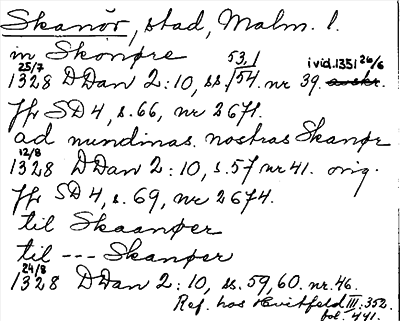 Skanör, stad, Malm. l.
in Skonøre
25/7 53,1 i vid. 1351 26/6
1328 DDan 2:10, ss. 54. nr 39. avskr.
Jfr SD 4, s. 66, nr 2671.
ad nundinas nostras Skanør
12/8
1328 DDan 2:10, s. 57 nr 41. orig.
Jfr SD 4, s. 69, nr 2674.
til Skaanøer
til --- Skanøer
24/8
1328 DDan 2:10, ss. 59, 60. nr. 46.
Ref. hos Hvitfeld III: 352.
fol. 441.